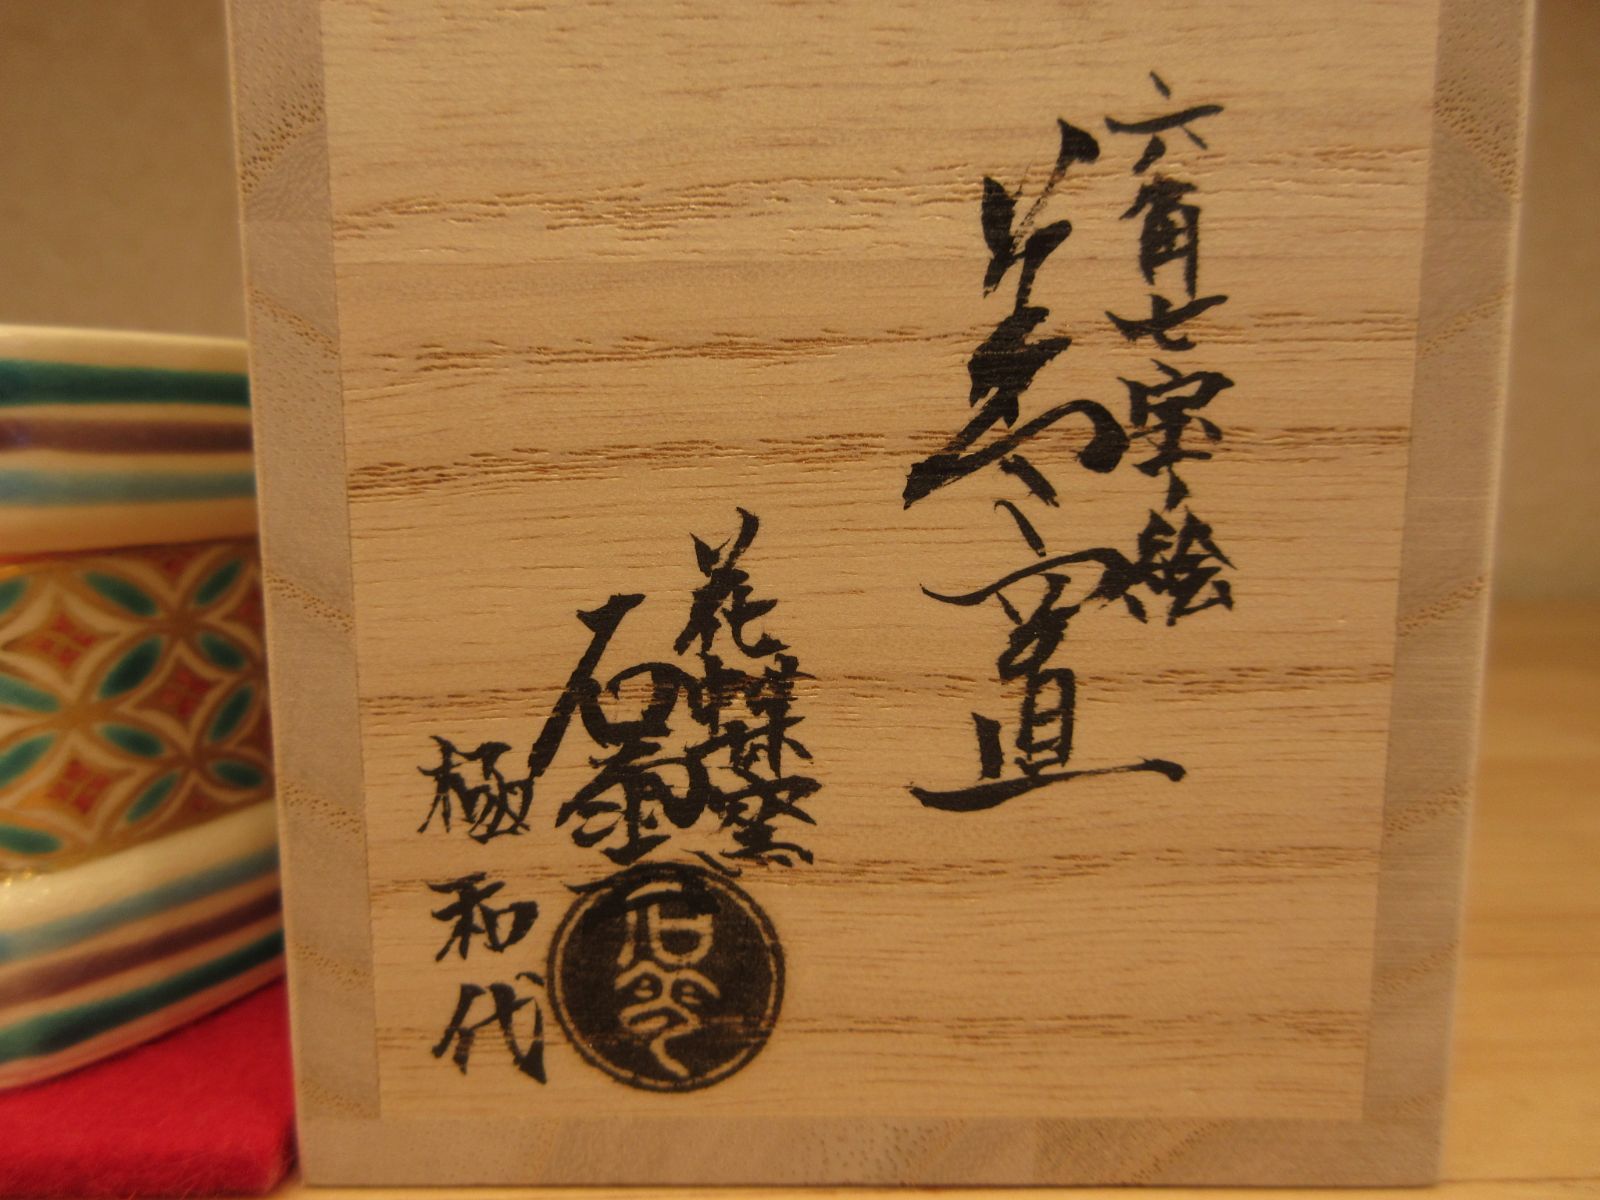 六角七宝絵
蓋置
花蝶窯
石
極
和代